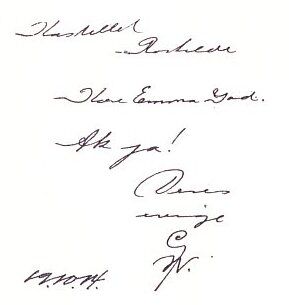 Kastellet
Roskilde
Kære Emma Gad.
Ak ja!
Deres
evige
GW.
19.10.14.